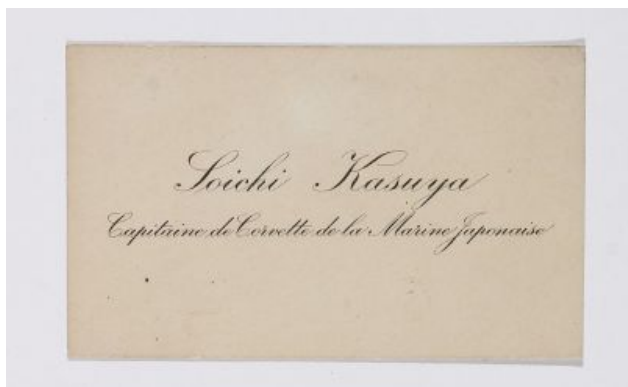 Soichi Kasuya
Capitaine de Corvette de la Marine Japonaise